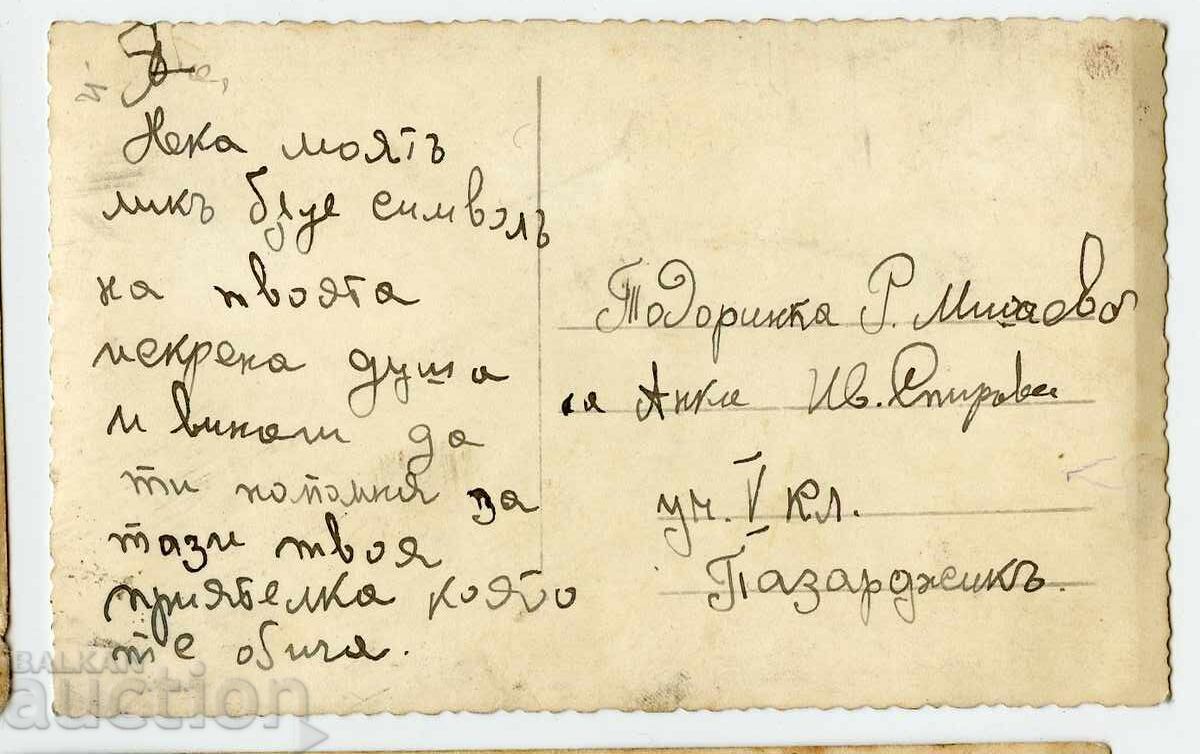 Нека моятъ
ликъ бѫде символъ
на твоята
искрена душа
и винаги да
ти напомня за
тази твоя
приятелка която
те обича.
Тодоринка Р.
и Анка Ив. Спирова
уч. V кл.
Пазарджикъ.
BALKAN
auction